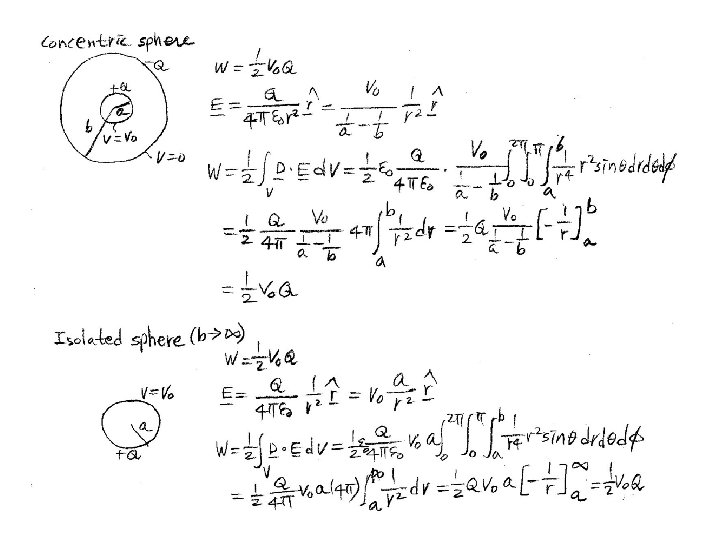 Concentric sphere
-Q
+Q
a
b
V=V₀
V=0
W = 1/2 V₀Q
E = Q/(4πε₀r²) r̂ = V₀/(1/a - 1/b) 1/r² r̂
W = 1/2 ∫_V D · E dV = 1/2 ε₀ Q/(4πε₀) · V₀/(1/a - 1/b) ∫₀^2π ∫₀^π ∫ₐ^b 1/r⁴ r² sinθ dr dθ dϕ
= 1/2 Q/(4π) V₀/(1/a - 1/b) 4π ∫ₐ^b 1/r² dr = 1/2 Q V₀/(1/a - 1/b) [-1/r]ₐ^b
= 1/2 V₀Q
Isolated sphere (b→∞)
W = 1/2 V₀Q
V=V₀
a
+Q
E = Q/(4πε₀) 1/r² r̂ = V₀ a/r² r̂
W = 1/2 ∫_V D · E dV = 1/2 ε₀ Q/(4πε₀) V₀ a ∫₀^2π ∫₀^π ∫ₐ^b 1/r⁴ r² sinθ dr dθ dϕ
= 1/2 Q/(4π) V₀ a (4π) ∫ₐ^∞ 1/r² dr = 1/2 Q V₀ a [-1/r]ₐ^∞ = 1/2 V₀Q